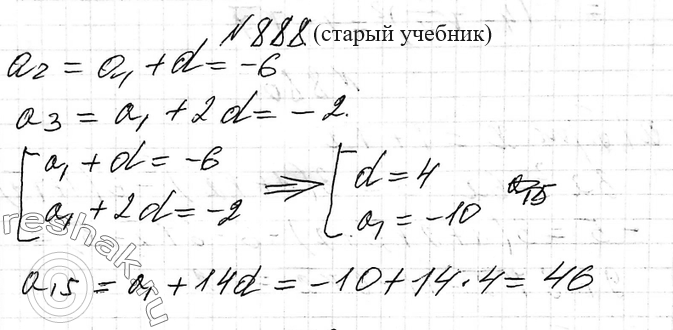 № 888 (старый учебник)
a₂ = a₁ + d = -6
a₃ = a₁ + 2d = -2.
[ a₁ + d = -6
a₁ + 2d = -2 ⇒ [ d = 4
a₁ = -10
a₁₅ = a₁ + 14d = -10 + 14 · 4 = 46
reshak.ru